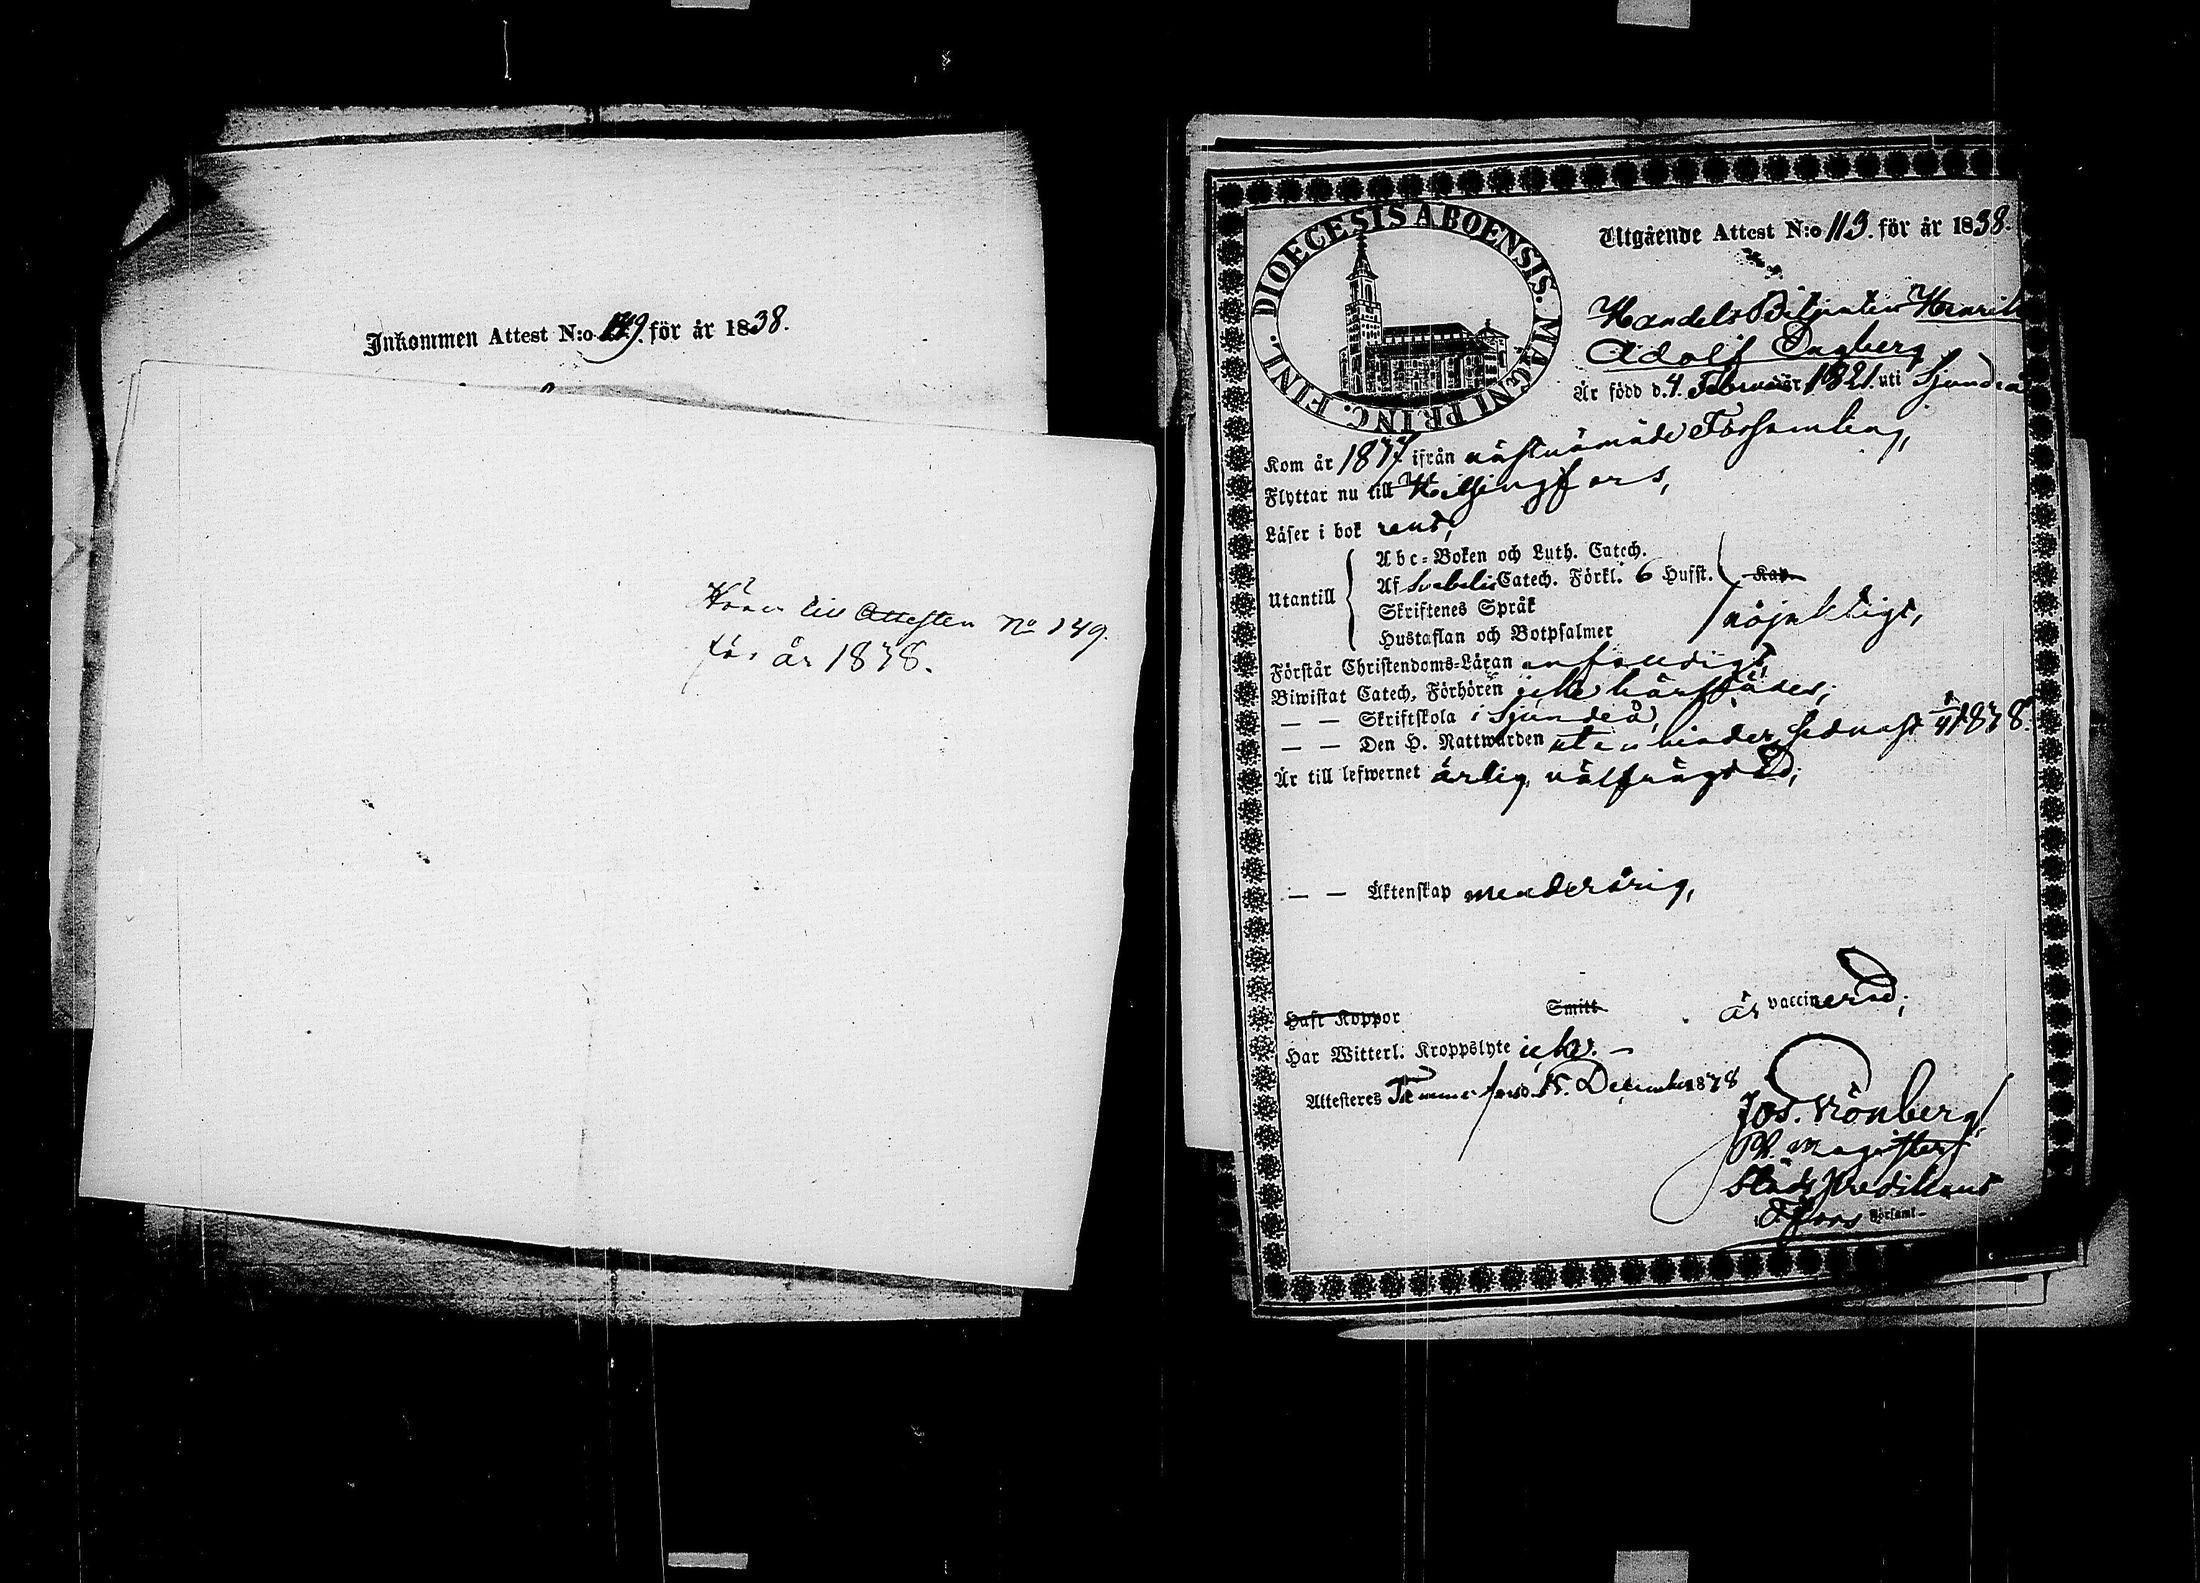 Inkommen Attest N:o 149. för år 1838.
Hörer till Attesten No 149.
för år 1838.
DIOECESIS ABOENSIS. MAGNI PRINC. FINL.
Utgående Attest N:o 113. för år 1838.
Handels Betjenten Henrik
Adolf Engberg
Är född d. 4. Februarii 1821. uti Sjundeå
Kom år 1837 ifrån nästnämnde Församling,
Flyttar nu till Helsingfors,
Läser i bok rent,
Utantill
Abc-Boken och Luth. Catech.
Af Svebelii Catech. Förkl. 6 Hufst. Kap.
Skriftenes Språk
Hustaflan och Botpsalmer
nöjaktigt,
Förstår Christendoms-Läran enfaldigt,
Biwistat Catech. Förhören icke härstädes;
— — Skriftskola i Sjundeå,
— — Den H. Nattwarden utan hinder sednast 1838.
Är till lefwernet ärlig, välfrägdad;
— — Äktenskap menderårig,
Haft Koppor Smitt är vaccinerad;
Har Witterl. Kroppslyte icke. —
Attesteres Tammerfors d. 15. December 1838
Jos. Grönberg
Ph. Magister
Stads Predikant
i T.fors Församl.